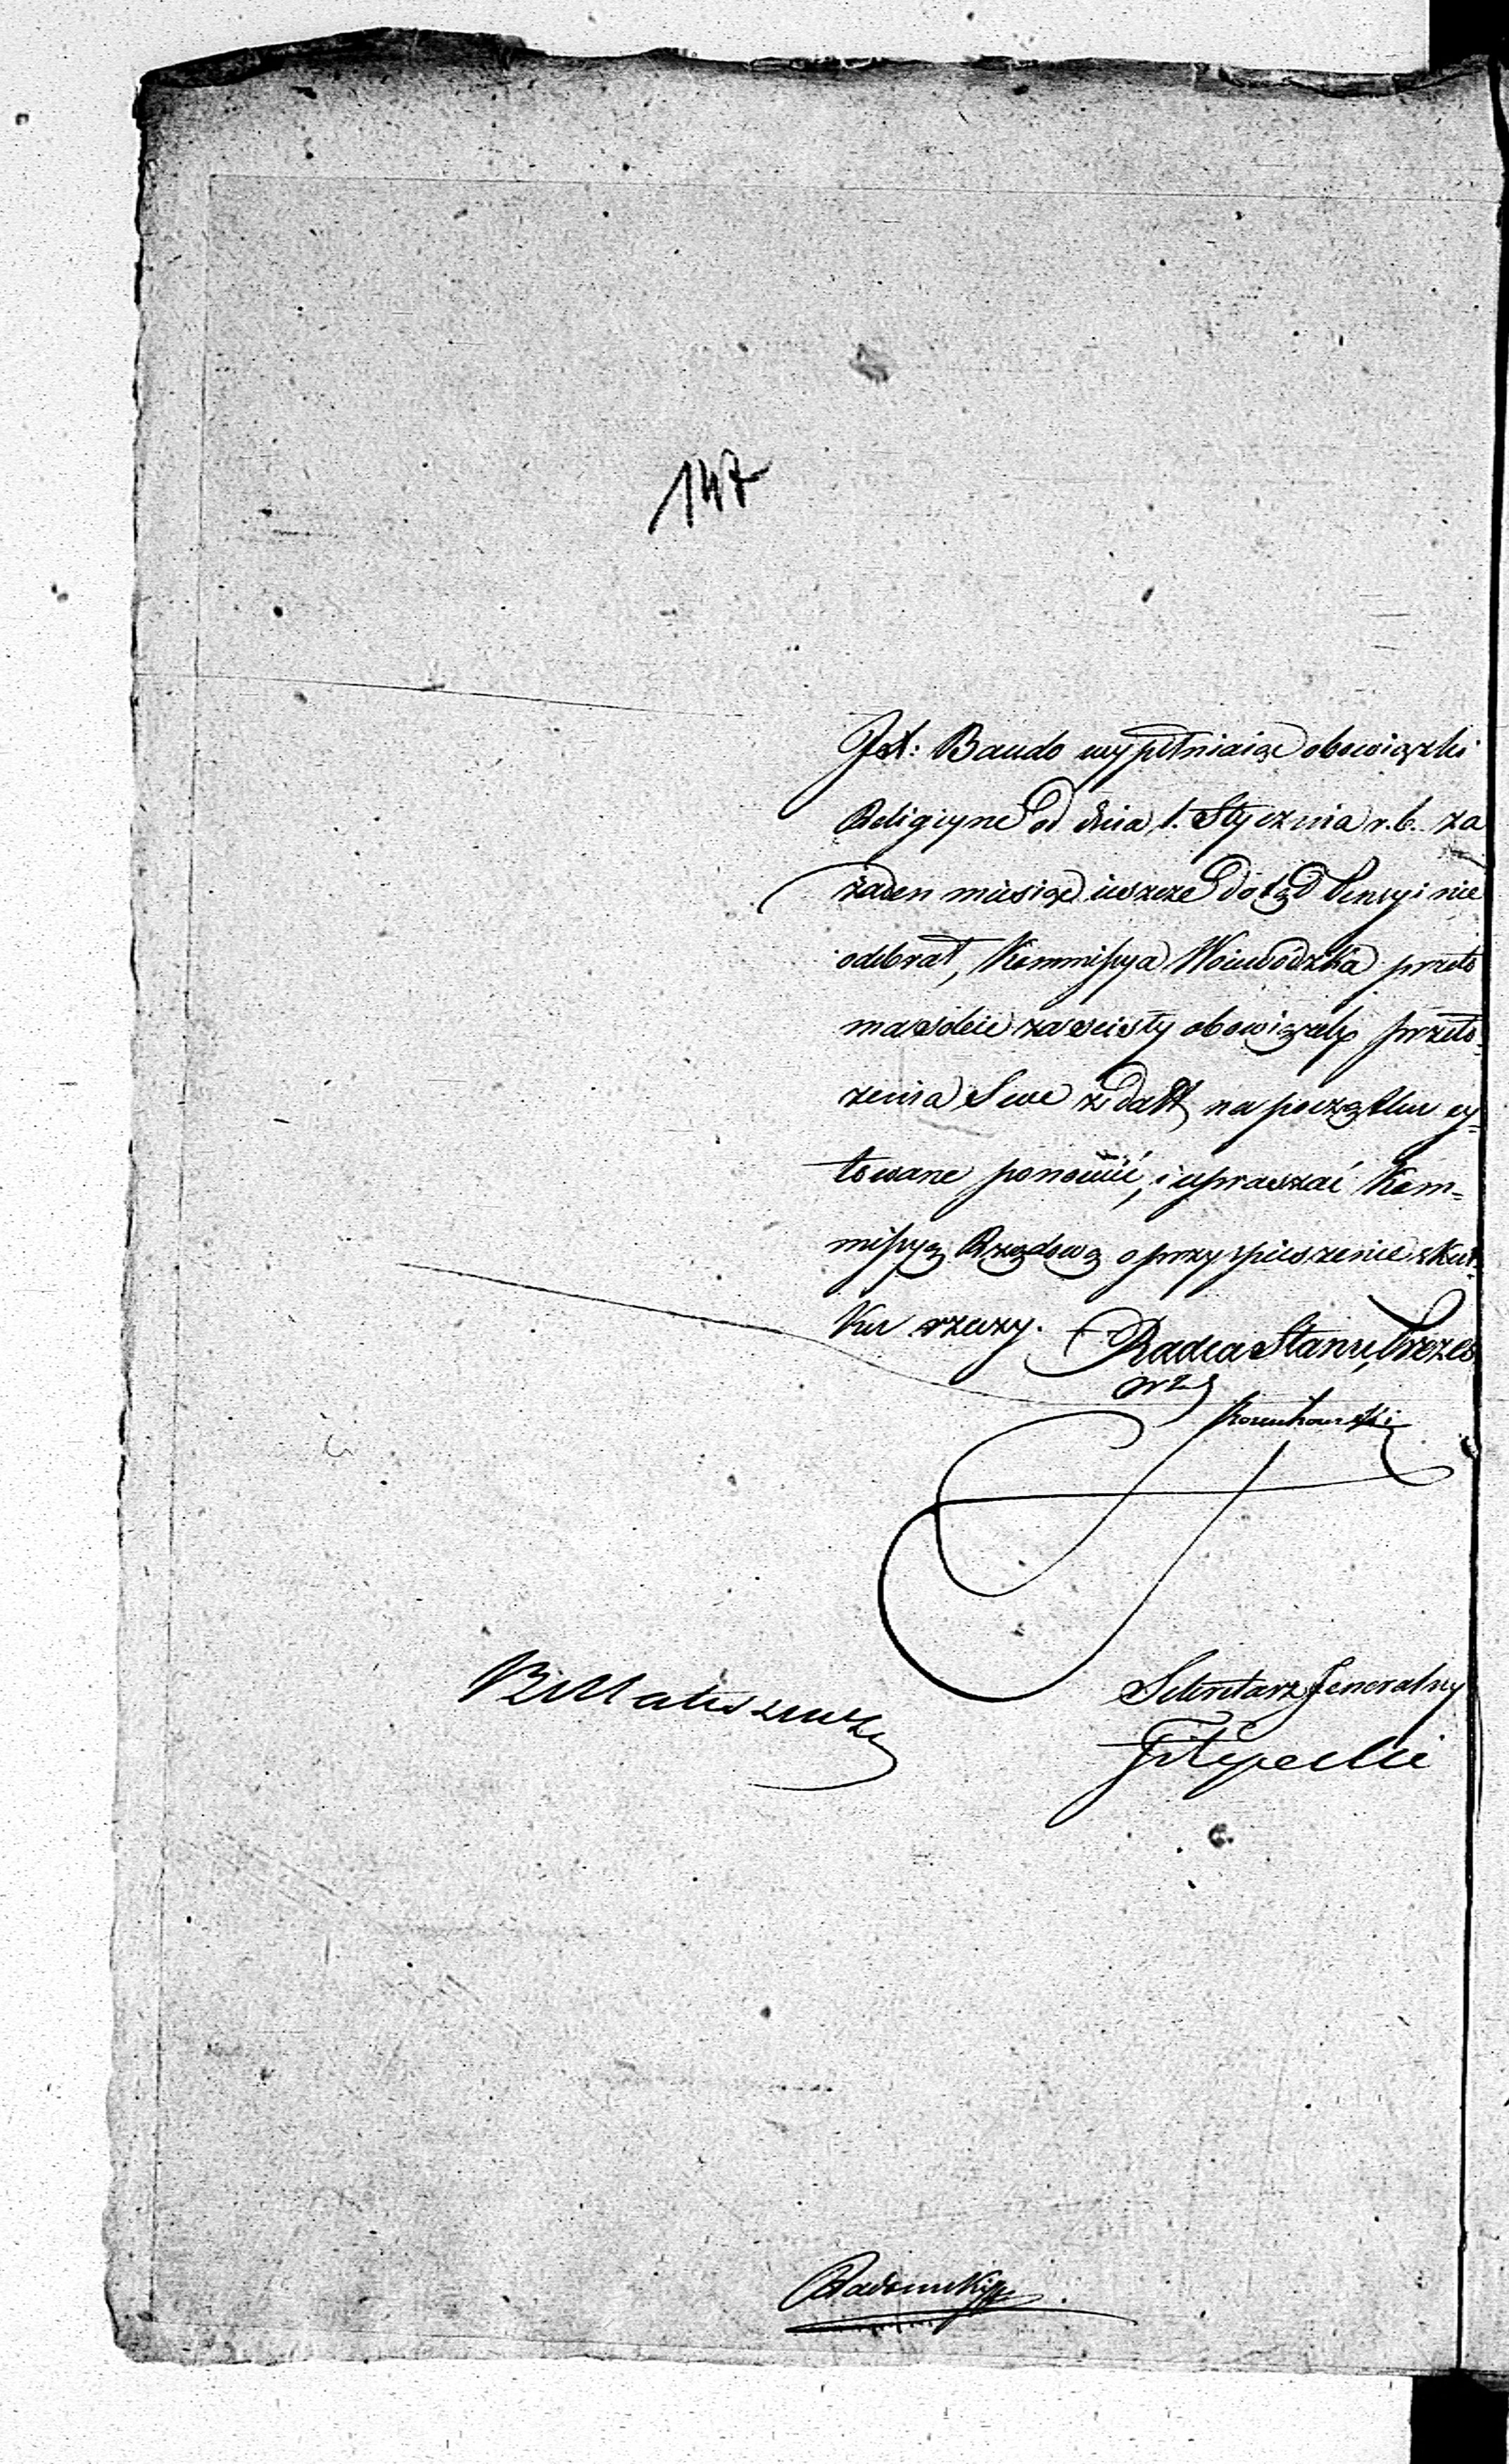 147
JX: Baudo wypełniaiąc obowiązki
Religiyne od dnia 1. Stycznia r. b. za
żaden miesiąc ieszcze dotąd Pensyi nie
odebrał, Kommissya Woiewódzka przeto
ma sobie za ścisły obowiązek przeło-
żenia Swe z datt na początku cy-
towane ponowić, i upraszać Kom-
missyą Rządową o przyspieszenie skut-
ku rzeczy.
Radca Stanu, Prezes
Sekretarz Generalny
Filipecki